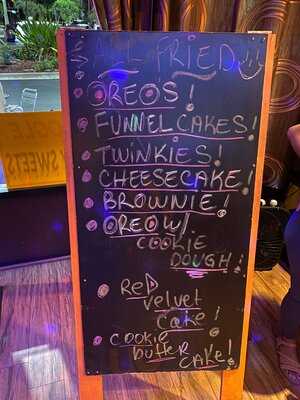 ALL FRIED
OREOS!
FUNNEL CAKES!
TWINKIES!
CHEESECAKE!
BROWNIE!
OREO W/
COOKIE
DOUGH!
ReD
velvet
cake!
COOKie
butter
CAKE!
SWEETS